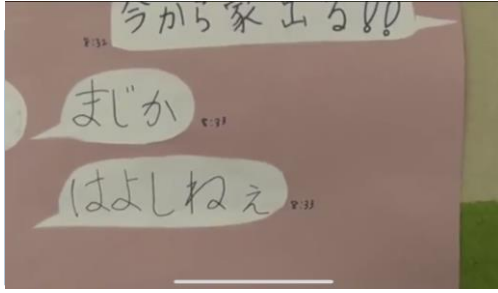 今から家出る!!
8:32
まじか
8:33
はよしねぇ
8:33